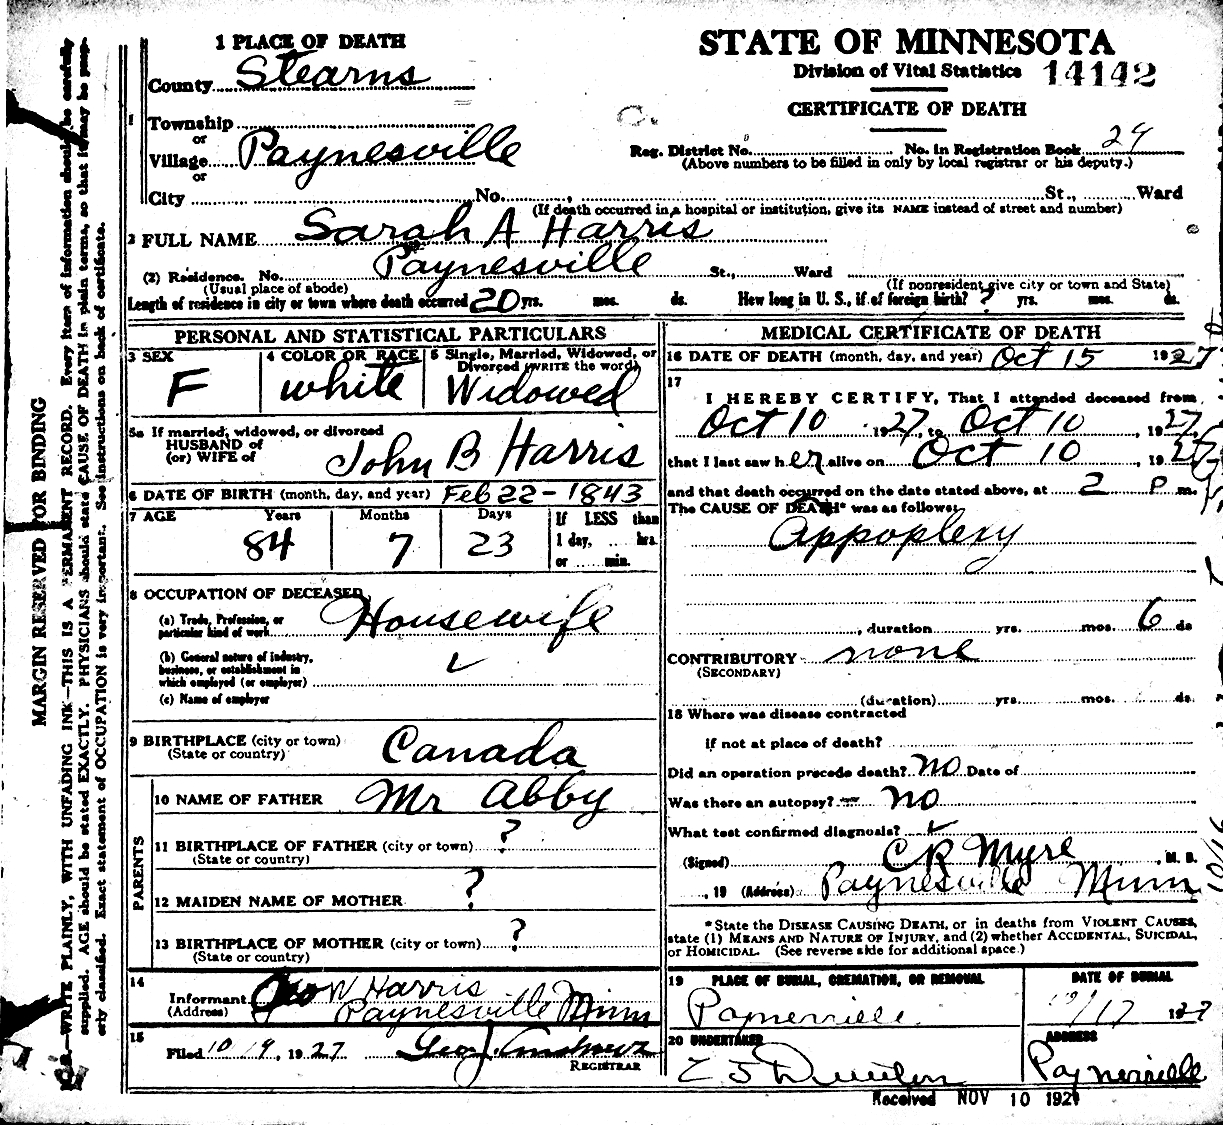 1 PLACE OF DEATH
County Stearns
Township
or
Village Paynesville
or
City No. St., Ward
(If death occurred in a hospital or institution, give its NAME instead of street and number)
STATE OF MINNESOTA
Division of Vital Statistics 14142
CERTIFICATE OF DEATH
Reg. District No. No. in Registration Book 29
(Above numbers to be filled in only by local registrar or his deputy.)
2 FULL NAME Sarah A Harris
(2) Residence. No. Paynesville St., Ward
(Usual place of abode) (If nonresident give city or town and State)
Length of residence in city or town where death occurred 20 yrs. mos. ds. How long in U. S., if of foreign birth? ? yrs. mos. ds.
PERSONAL AND STATISTICAL PARTICULARS
3 SEX F
4 COLOR OR RACE white
5 Single, Married, Widowed, or Divorced (WRITE the word) Widowed
5a If married, widowed, or divorced
HUSBAND of
(or) WIFE of John B Harris
6 DATE OF BIRTH (month, day, and year) Feb 22 - 1843
7 AGE Years Months Days If LESS than
84 7 23 1 day, hrs.
or min.
8 OCCUPATION OF DECEASED
(a) Trade, Profession, or
particular kind of work Housewife
(b) General nature of industry,
business, or establishment in
which employed (or employer)
(c) Name of employer
9 BIRTHPLACE (city or town) Canada
(State or country)
PARENTS
10 NAME OF FATHER Mr Abby
11 BIRTHPLACE OF FATHER (city or town) ?
(State or country)
12 MAIDEN NAME OF MOTHER ?
13 BIRTHPLACE OF MOTHER (city or town) ?
(State or country)
14
Informant Geo W Harris
(Address) Paynesville Minn
15
Filed 10 19, 1927
REGISTRAR
MEDICAL CERTIFICATE OF DEATH
16 DATE OF DEATH (month, day, and year) Oct 15 1927
17
I HEREBY CERTIFY, That I attended deceased from
Oct 10 1927, to Oct 10, 1927,
that I last saw her alive on Oct 10, 1927
and that death occurred on the date stated above, at 2 P m.
The CAUSE OF DEATH* was as follows:
Appoplexy
, duration yrs. mos. 6 ds
CONTRIBUTORY none
(SECONDARY)
(duration) yrs. mos. ds.
18 Where was disease contracted
If not at place of death?
Did an operation precede death? no Date of
Was there an autopsy? no
What test confirmed diagnosis?
(Signed) C R Myre, M. D.
, 19 (Address) Paynesville Minn
*State the DISEASE CAUSING DEATH, or in deaths from VIOLENT CAUSES,
state (1) MEANS AND NATURE OF INJURY, and (2) whether ACCIDENTAL, SUICIDAL,
or HOMICIDAL. (See reverse side for additional space.)
19 PLACE OF BURIAL, CREMATION, OR REMOVAL DATE OF BURIAL
Paynesville 10/17 1927
20 UNDERTAKER ADDRESS
Paynesville
Received NOV 10 192
MARGIN RESERVED FOR BINDING
N. B.—WRITE PLAINLY, WITH UNFADING INK—THIS IS A PERMANENT RECORD. Every item of information should be carefully
supplied. AGE should be stated EXACTLY. PHYSICIANS should state CAUSE OF DEATH in plain terms, so that it may be prop-
erly classified. Exact statement of OCCUPATION is very important. See instructions on back of certificate.